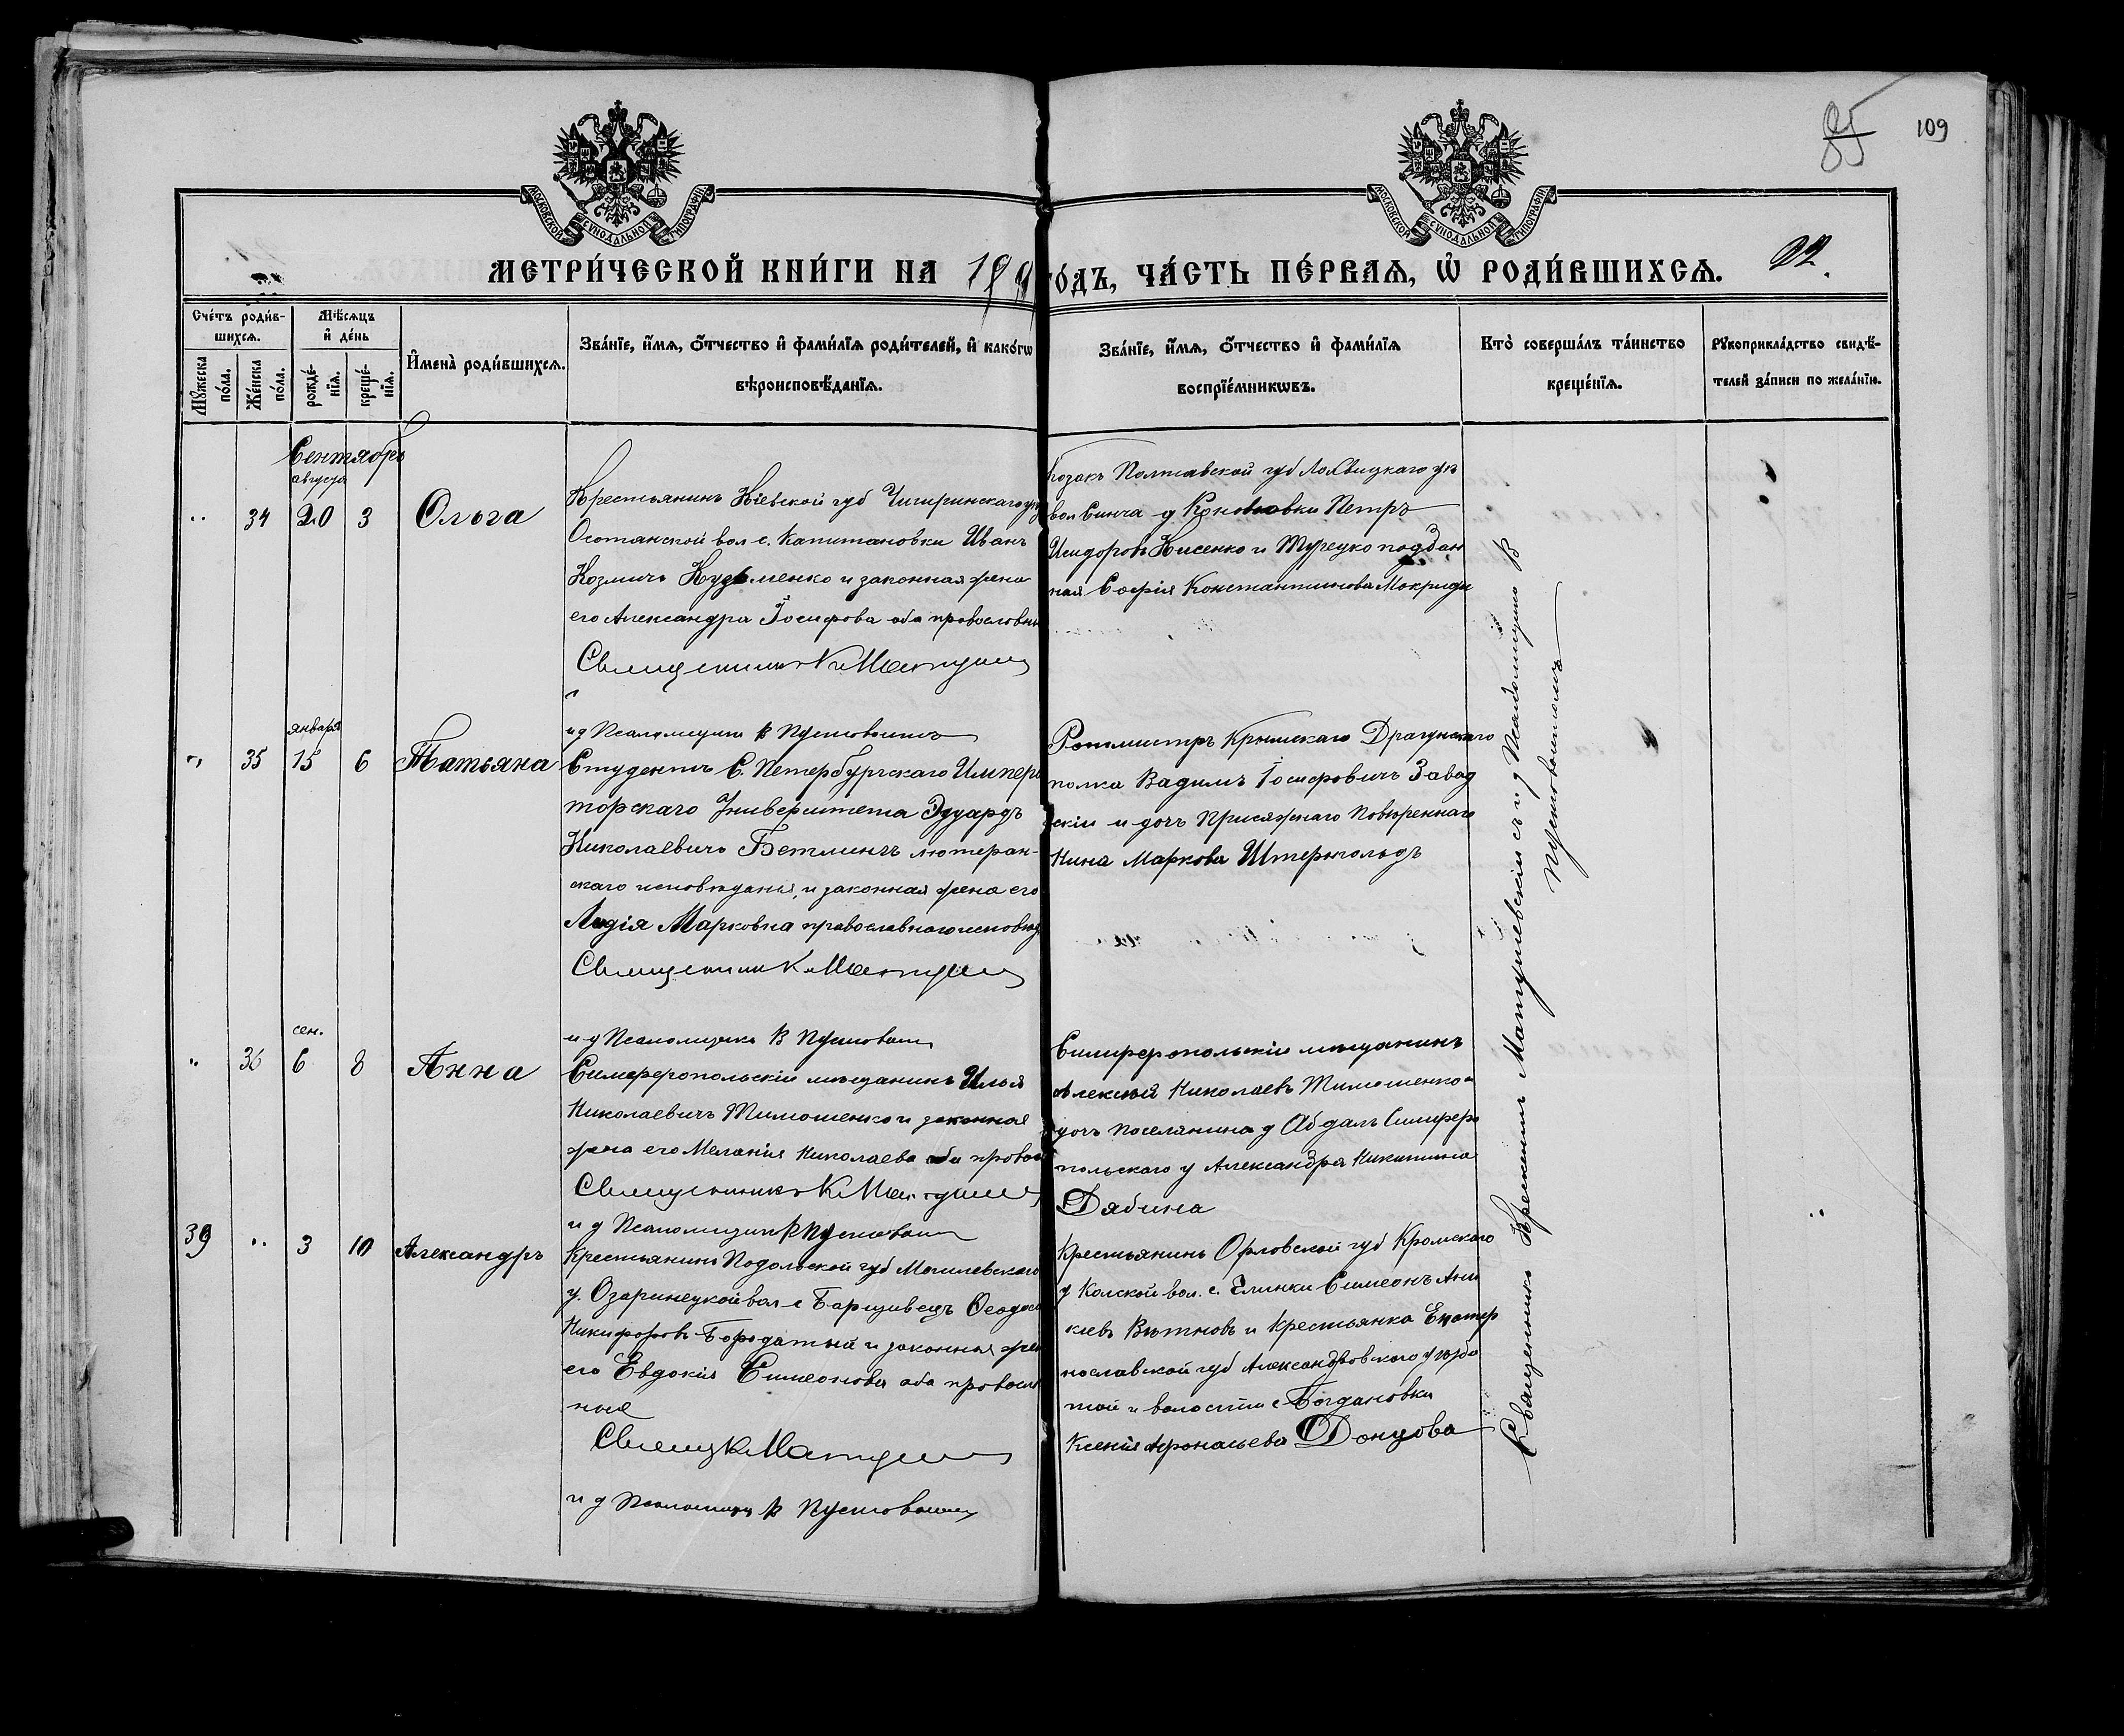 109
МОСКОВСКОЙ СѴНОДАЛЬНОЙ ТИПОГРАФІИ
МОСКОВСКОЙ СѴНОДАЛЬНОЙ ТИПОГРАФІИ
МЕТРИ́ЧЕСКОЙ КНИ́ГИ НА 189
ГО́ДЪ, ЧА́СТЬ ПЕ́РВАѦ, Ѡ҆ РОДИ́ВШИХСѦ.
22.
Сче́тъ роди́в-
шихсѧ.
Мѣ́сѧцъ
и҆ де́нь
Мꙋ́жеска по́ла.
Же́нска по́ла.
рожде́-
нїѧ.
креще́-
нїѧ.
И҆мена̀ роди́вшихсѧ.
Зва́нїе, и҆́мѧ, ѻ҆́тчество и҆ фами́лїѧ роди́телей, и҆ како́гѡ
вѣроисповѣ́данїѧ.
Зва́нїе, и҆́мѧ, ѻ҆́тчество и҆ фами́лїѧ
воспрїе́мникѡвъ.
Кто̀ соверша́лъ та́инство
креще́нїѧ.
Рꙋкоприкла́дство свидѣ́-
телей за́писи по жела́нїю.
Сентябрь
августа
34 20 3 Ольга
Крестьянинъ Кіевской губ Чигиринскаго у
Осотянской вол с. Капитановки Иванъ
Козмичъ Кузьменко и законная жена
его Александра Іосифова оба православны
Священникъ К Матушев
и д Псаломщика В Пустовоитъ
Козакъ Полтавской губ Лохвицкаго у
вол Сенча д Коновки Петръ
Исидоровъ Кисенко и Турецко поддан
ная Софія Константинова Мокриди
января
35 15 6 Татьяна
Студентъ С. Петербургскаго Импера
торскаго Университета Эдуардъ
Николаевичъ Бетлингъ лютеран-
скаго исповѣданія, и законная жена его
Лидія Марковна православнаго исповѣд
Священник К Матушев
и д Псаломщика В Пустовоит
Ротмистръ Крымскаго Драгунскаго
полка Вадимъ Іосифовичъ Завад
скій и дочь Присяжнаго Повѣреннаго
Нина Маркова Штернгольдъ
сен.
36 6 8 Анна
Симферопольскій мѣщанинъ Илья
Николаевичъ Тимошенко и законная
жена его Меланія Николаева оба правос
Священникъ К Матушев
и д Псаломщик В Пустовоит
Симферопольскій мѣщанинъ
Алексѣй Николаевъ Тимошенко и
дочь поселянина д Абдалъ Симферо
польскаго у Александра Никитина
Дябина
39 3 10 Александръ
Крестьянинъ Подольской губ Могилевскаго
у. Озаринецкой вол с Борщивецъ Ѳеодос
Никифоровъ Бородатый и законная жен
его Евдокія Симеонова оба правосла
ные
Священ К Матушев
и д Псаломщик В Пустовоит
Крестьянинъ Орловской губ Кромскаго
у вол. с. Глинки Симеонъ Ани
кіевъ и крестьянка Екатер
нославской губ Александровскаго у
той и волости с Богдановки
Ксенія Афанасьева Донцова
Священникъ Матушевскій съ и д Псаломщика В
Пустовоитомъ